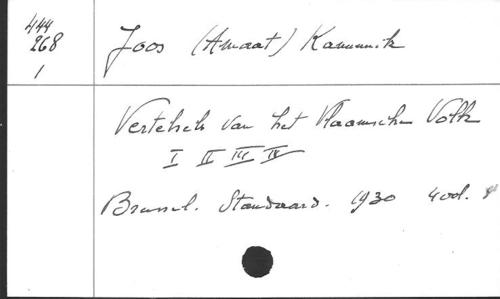 444
268
1
Joos (Amaat) Kanunnik
Vertelsels van het Vlaamsche Volk
I II III IV
Brussel. Standaard. 1930 4 vol.